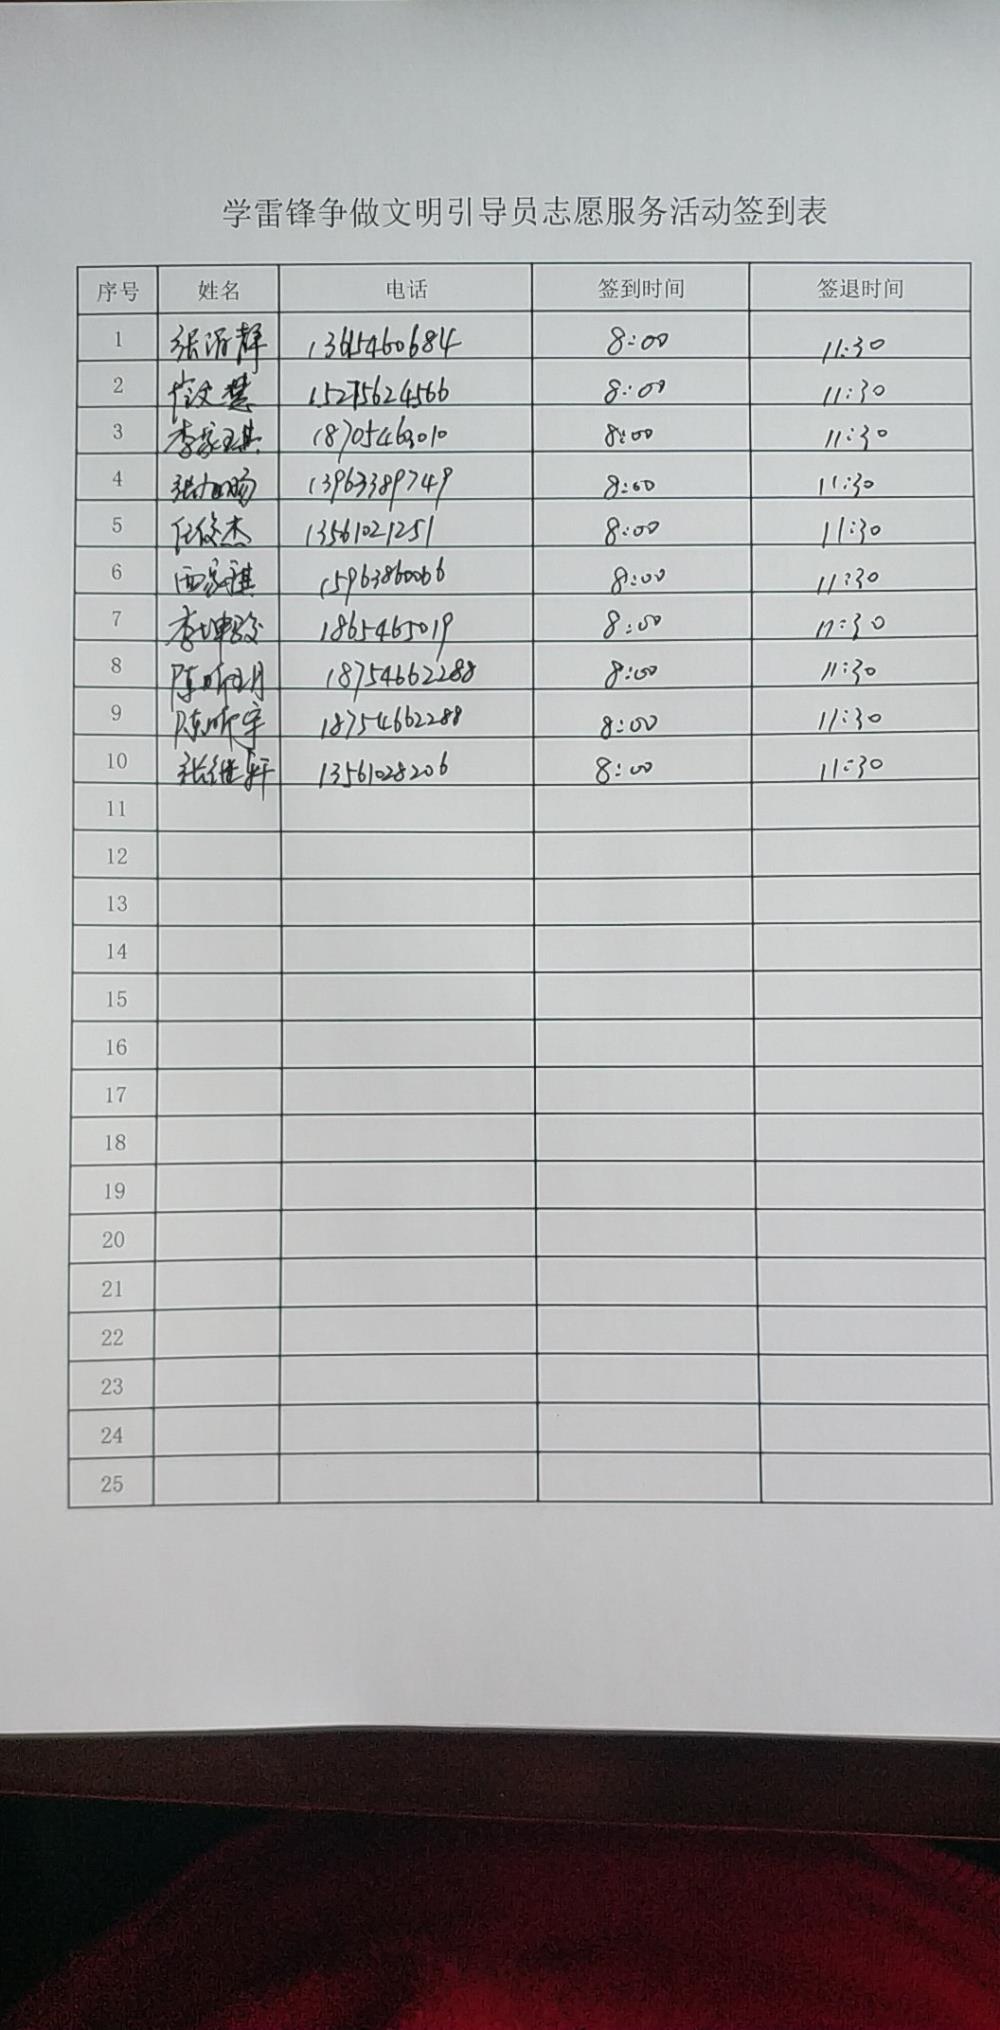 学雷锋争做文明引导员志愿服务活动签到表
序号 姓名 电话 签到时间 签退时间
1 13615460684 8:00 11:30
2 崔文慧 15275624566 8:00 11:30
3 李家琪 18705463010 8:00 11:30
4 张如旸 13963389749 8:00 11:30
5 任俊杰 13561021251 8:00 11:30
6 15963860066 8:00 11:30
7 李坤骏 1865465019 8:00 11:30
8 陈昕玥 18754662288 8:00 11:30
9 陈昕宇 18754662288 8:00 11:30
10 张继轩 13561028206 8:00 11:30
11
12
13
14
15
16
17
18
19
20
21
22
23
24
25